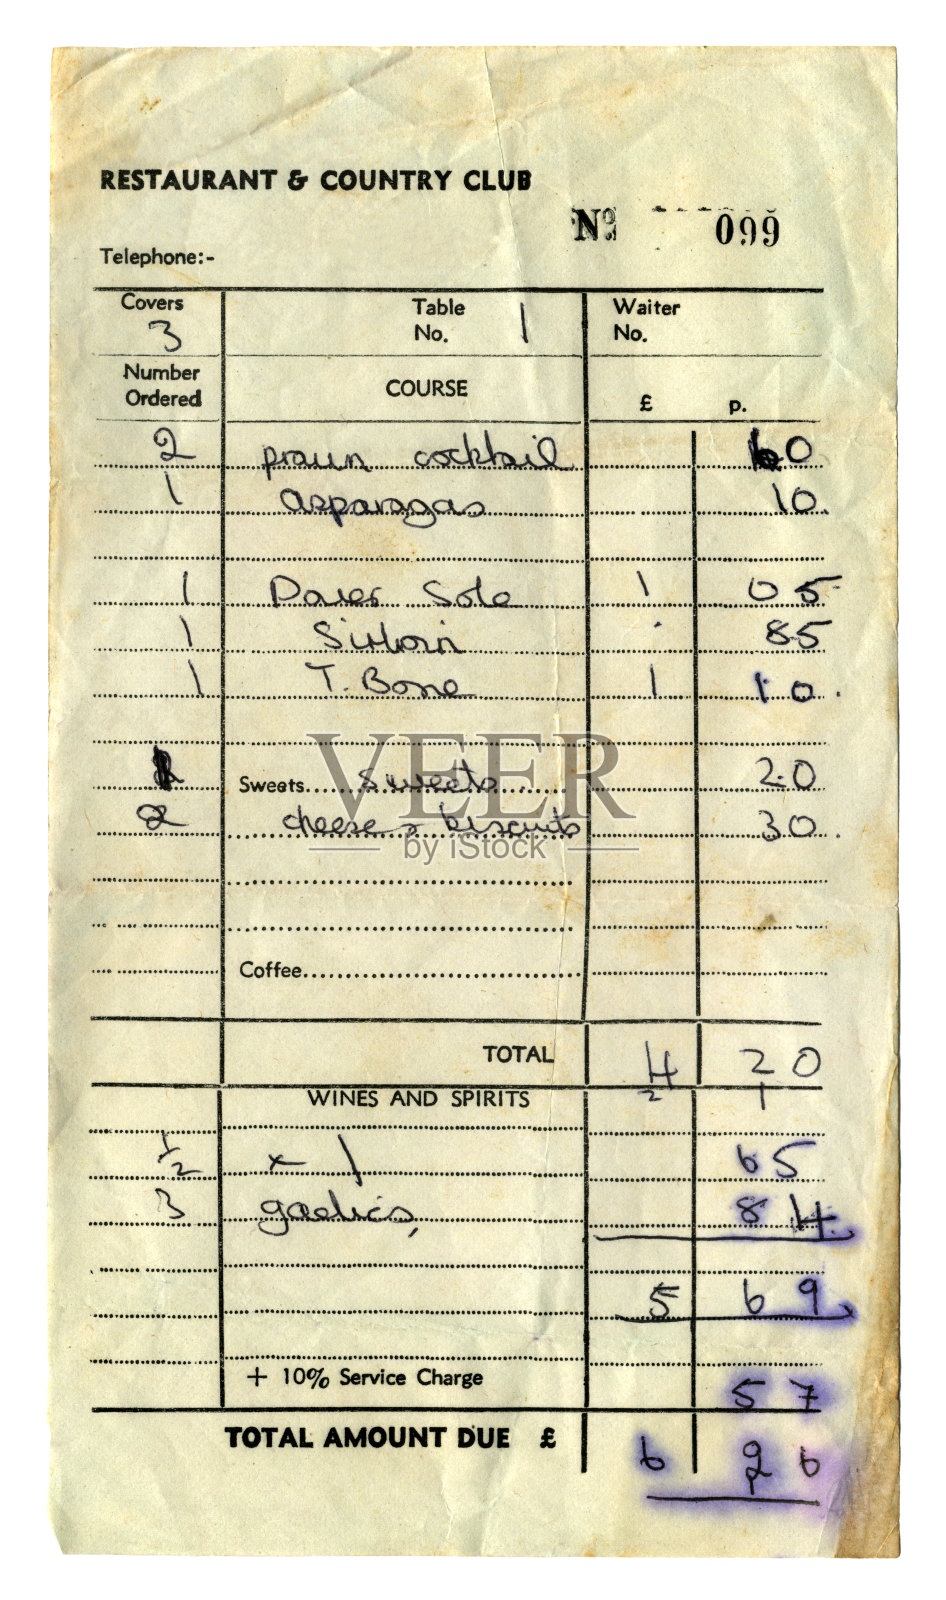 RESTAURANT & COUNTRY CLUB
Nº 099
Telephone:-
Covers 3 Table No. 1 Waiter No.
Number Ordered COURSE £ p.
2 prawn cocktail 60
1 asparagas 10.
1 Dover Sole 1 05
1 Sirloin . 85
1 T. Bone 1 10.
1 Sweets sweets 20
2 cheese & biscuits 30.
VEER
by iStock
Coffee
TOTAL 4 20
2 1
WINES AND SPIRITS
1/2 x 1 65
3 gaelics, 84
5 69
+ 10% Service Charge 57
TOTAL AMOUNT DUE £ 6 26